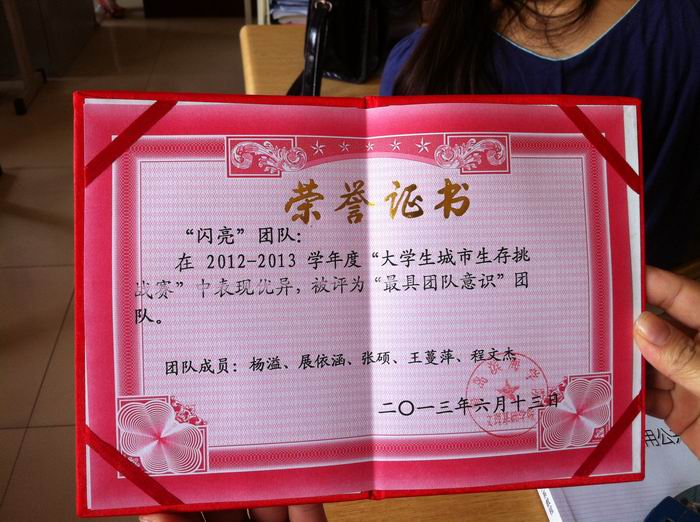 荣誉证书
“闪亮”团队：
在 2012-2013 学年度“大学生城市生存挑
战赛”中表现优异，被评为“最具团队意识”团
队。
团队成员：杨溢、展依涵、张硕、王蔓萍、程文杰
二〇一三年六月十三日
用公